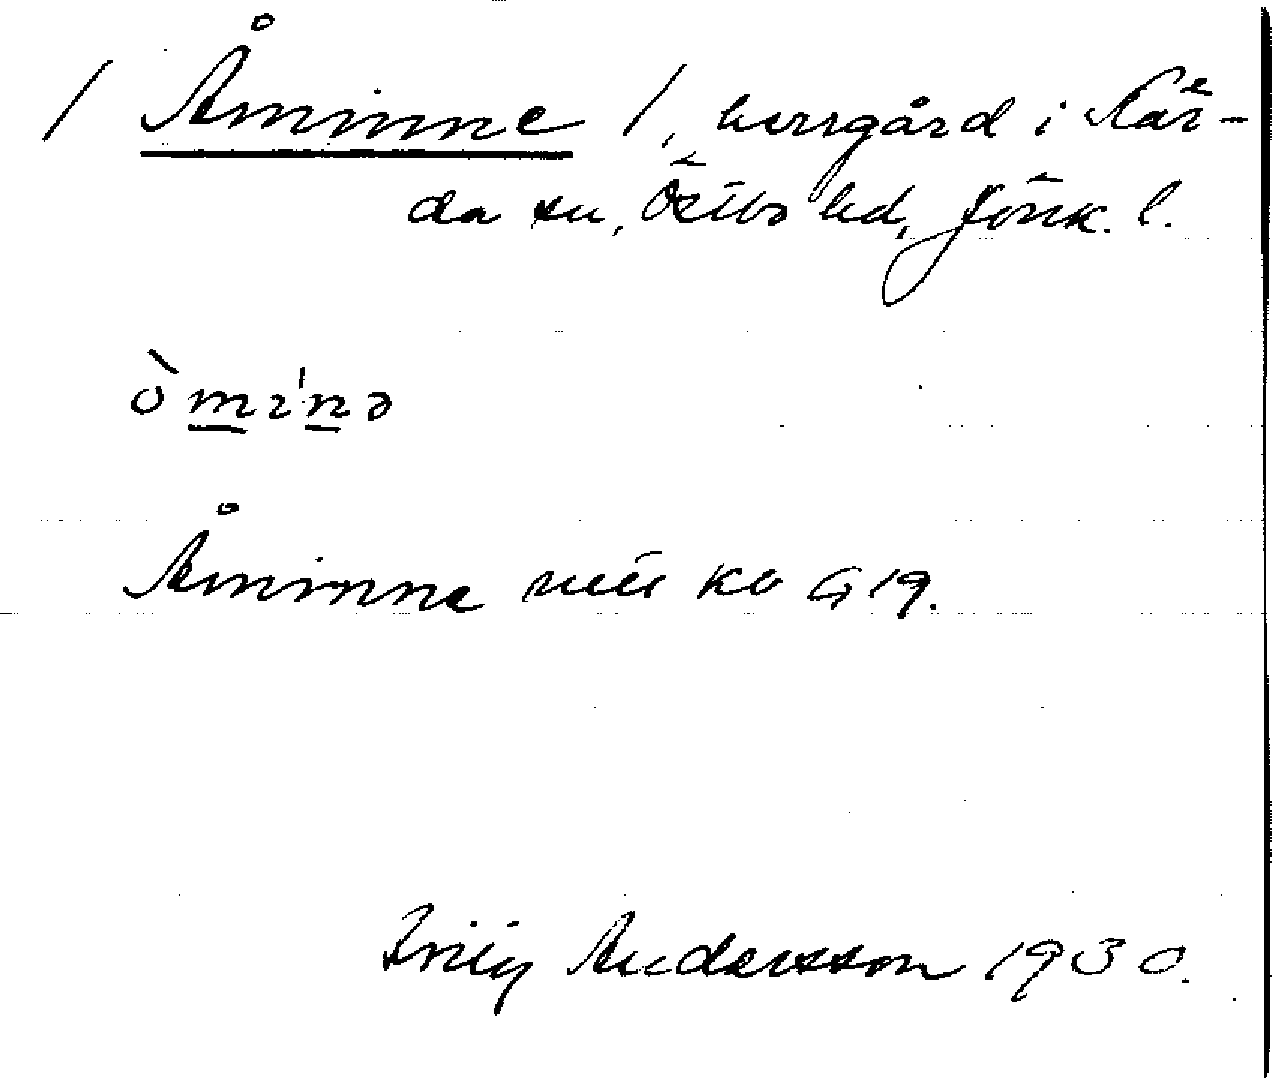 / Åminne /, herrgård i Kär-
da sn, Östbo hd, Jönk. l.
òmı'nə
Åminne
Åminne KB G 19.
Andersson 1930.